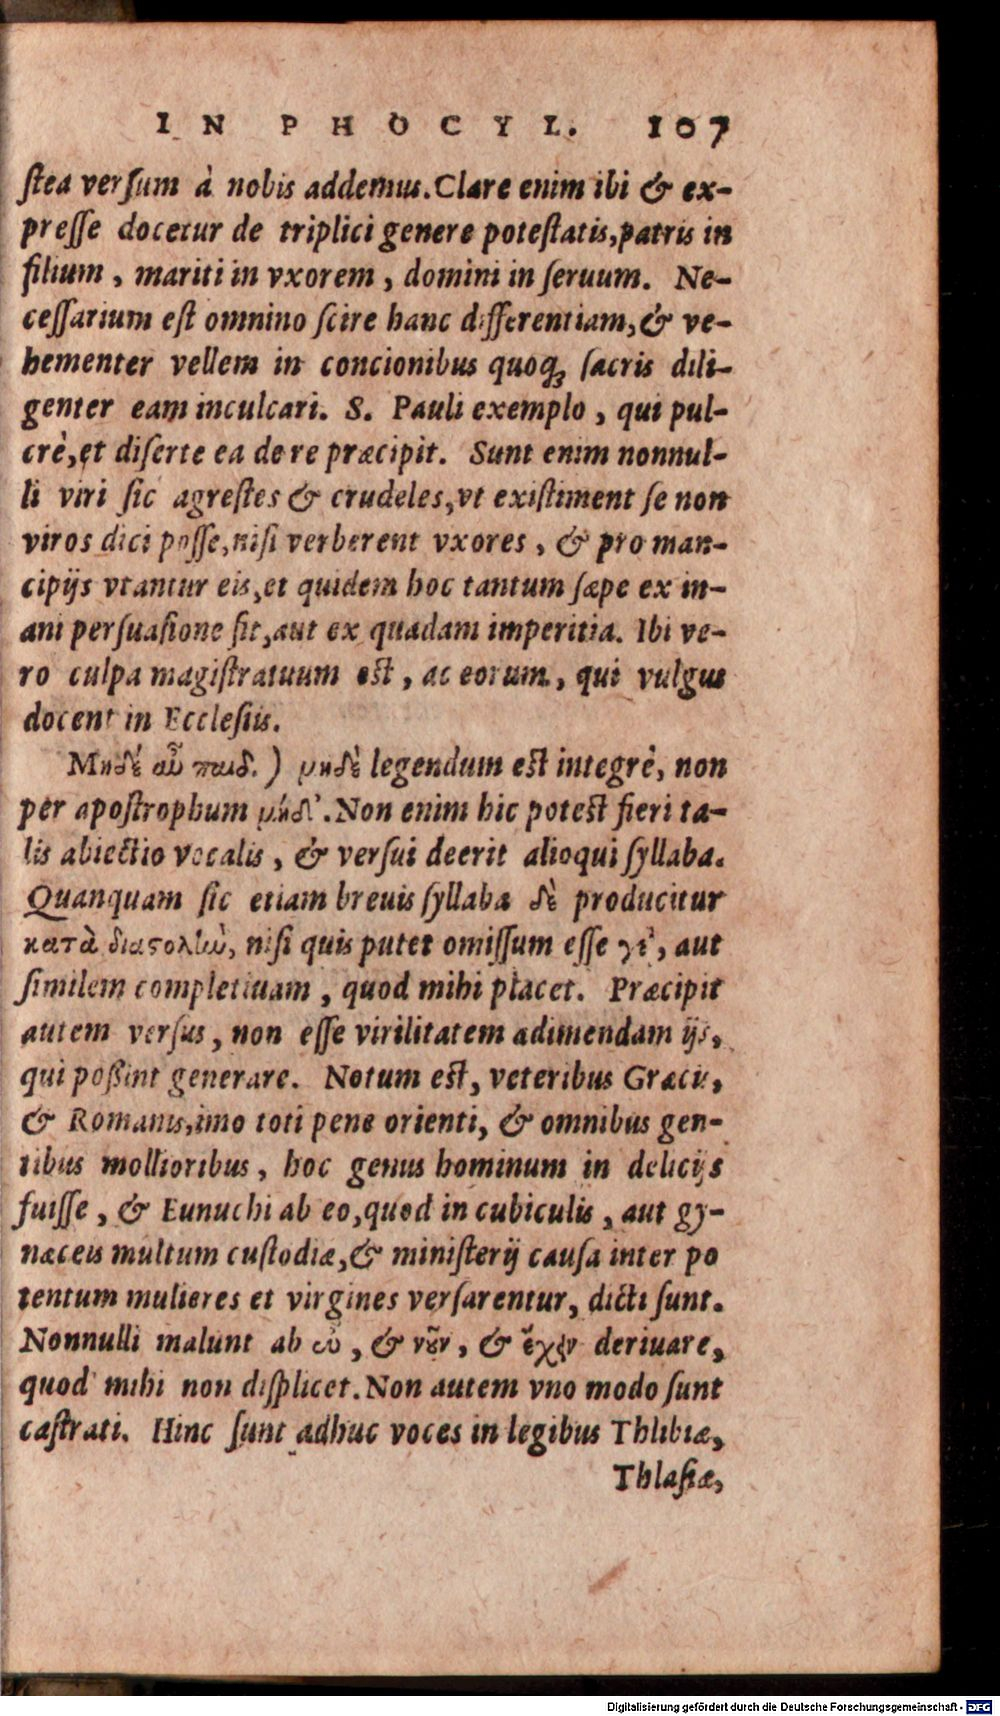 IN PHOCYL. 107
ſtea verſum à nobis addemus. Clare enim ibi & ex-
preſſe docetur de triplici genere poteſtatis, patris in
filium, mariti in vxorem, domini in ſeruum. Ne-
ceſſarium eſt omnino ſcire hanc differentiam, & ve-
hementer vellem in concionibus quoq; ſacris dili-
genter eam inculcari. S. Pauli exemplo, qui pul-
crè, et diſerte ea de re præcipit. Sunt enim nonnul-
li viri ſic agreſtes & crudeles, vt exiſtiment ſe non
viros dici poſſe, niſi verberent vxores, & pro man-
cipijs vtantur eis, et quidem hoc tantum ſæpe ex in-
ani perſuaſione fit, aut ex quadam imperitia. Ibi ve-
ro culpa magiſtratuum eſt, ac eorum, qui vulgus
docent in Eccleſiis.
Μηδέ αὖ παιδ.) μηδὲ legendum eſt integrè, non
per apoſtrophum μήδ'. Non enim hic poteſt fieri ta-
lis abiectio vocalis, & verſui deerit alioqui ſyllaba.
Quanquam ſic etiam breuis ſyllaba δὲ producitur
κατὰ διαστολὼ, niſi quis putet omiſſum eſſe γέ, aut
ſimilem completiuam, quod mihi placet. Præcipit
autem verſus, non eſſe virilitatem adimendam ijs,
qui poßint generare. Notum eſt, veteribus Græcis,
& Romanis, imo toti pene orienti, & omnibus gen-
tibus mollioribus, hoc genus hominum in delicijs
fuiſſe, & Eunuchi ab eo, quod in cubiculis, aut gy-
næceis multum cuſtodiæ, & miniſterij cauſa inter po
tentum mulieres et virgines verſarentur, dicti ſunt.
Nonnulli malunt ab εὖ, & νοῦν, & ἔχειν deriuare,
quod mihi non diſplicet. Non autem vno modo ſunt
caſtrati. Hinc ſunt adhuc voces in legibus Thlibiæ,
Thlaſiæ,
Digitalisierung gefördert durch die Deutsche Forschungsgemeinschaft - DFG